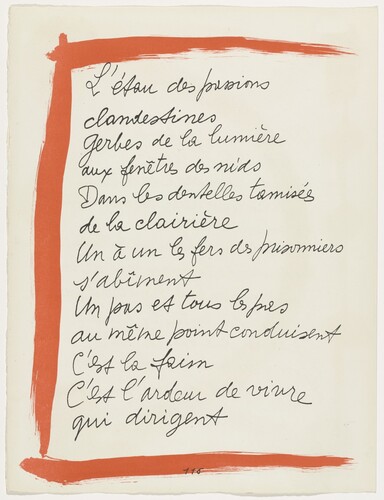 L'étau des passions
clandestines
Gerbes de la lumière
aux fenêtres des nids
Dans les dentelles tamisées
de la clairière
Un à un les fers des prisonniers
s'abîment
Un pas et tous les pas
au même point conduisent
C'est la faim
C'est l'ardeur de vivre
qui dirigent
115